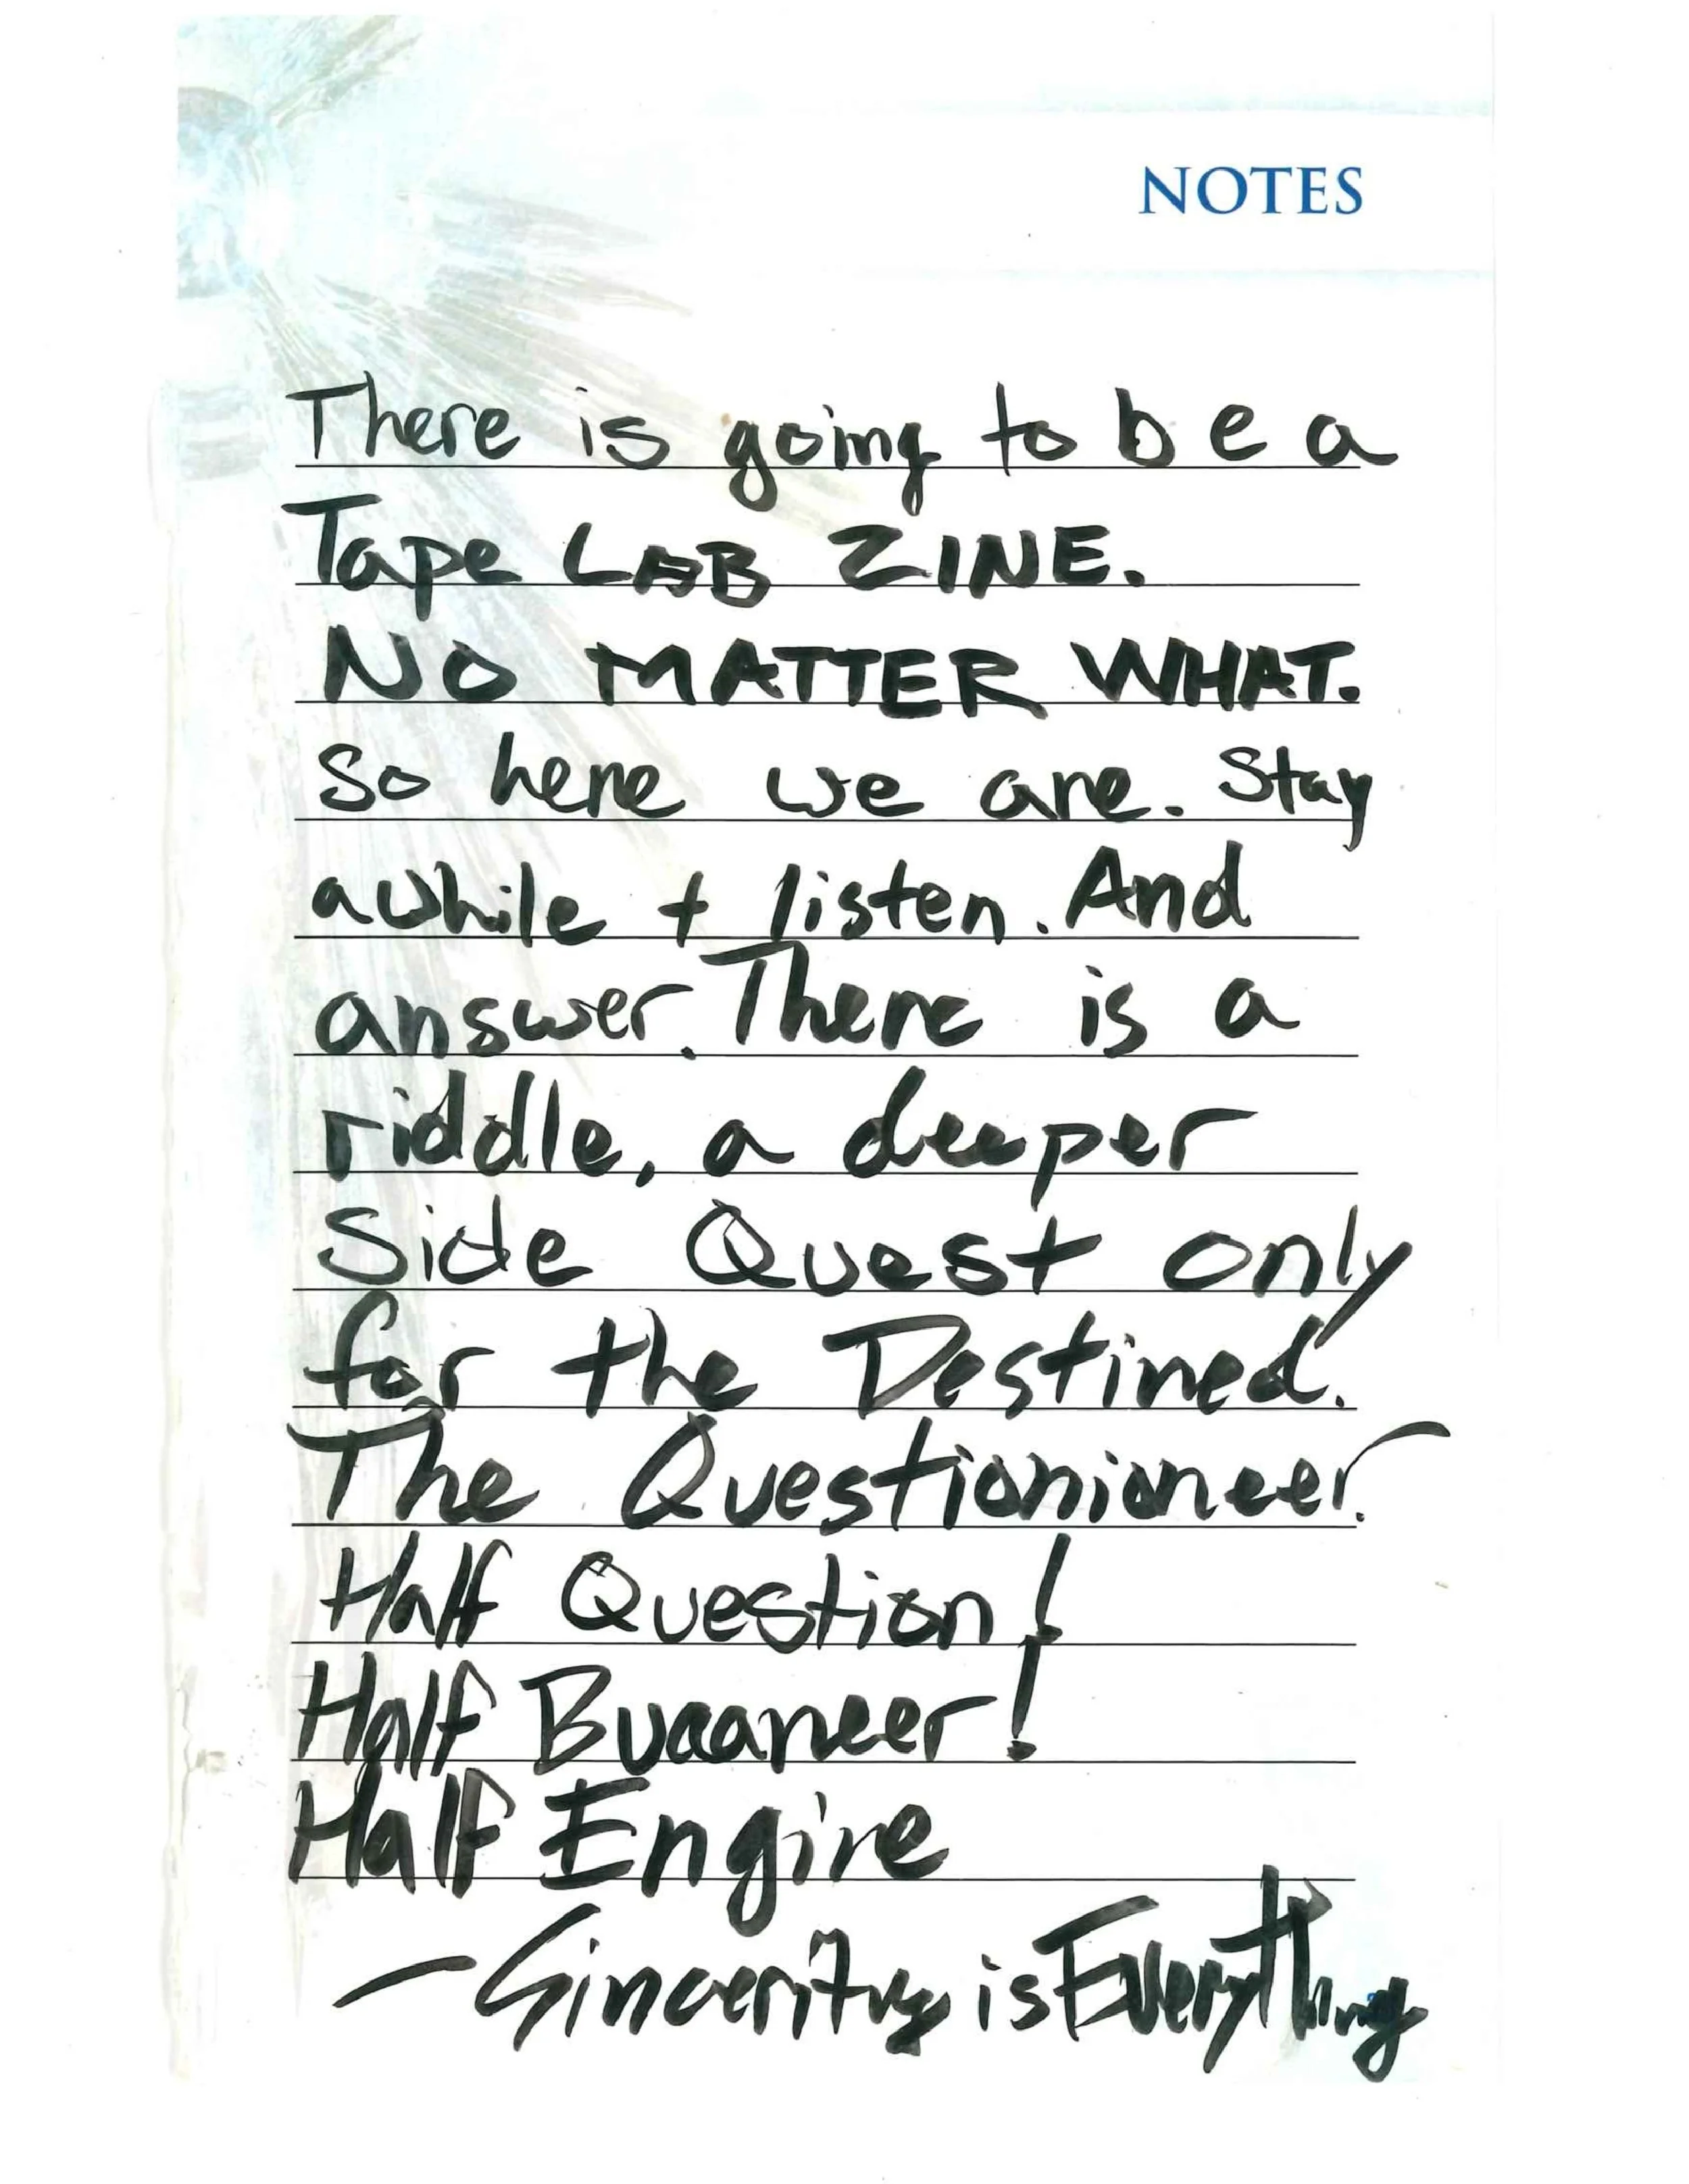 NOTES
There is going to be a
Tape LAB ZINE.
NO MATTER WHAT.
So here we are. Stay
awhile + listen. And
answer. There is a
riddle, a deeper
Side Quest only
for the Destined.
The Questionioneer.
Half Question!
Half Bucaneer!
Half Engine
—Sincerity is Everything